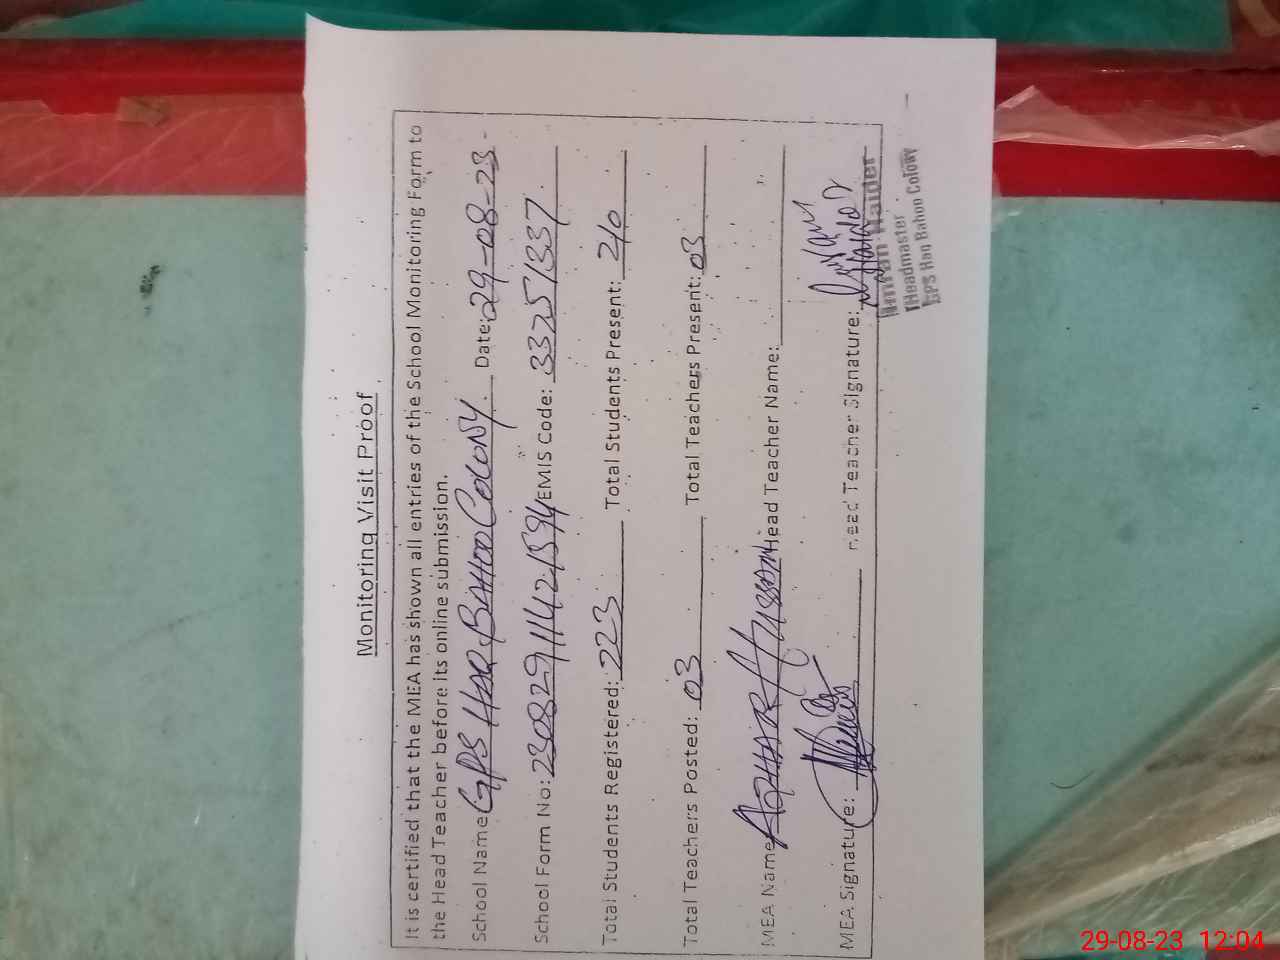 Monitoring Visit Proof
It is certified that the MEA has shown all entries of the School Monitoring Form to
the Head Teacher before its online submission.
School Name GPS HAQ BAHOO COLONY. Date: 29-08-23
School Form No: EMIS Code: 33251337
Total Students Registered: 223 Total Students Present: 210
Total Teachers Posted: 03 Total Teachers Present: 03
MEA Name HUSSAIN Head Teacher Name:
MEA Signature: Head Teacher Signature:
Imran Haider
Headmaster
GPS Haq Bahoo Colony
29-08-23 12:04